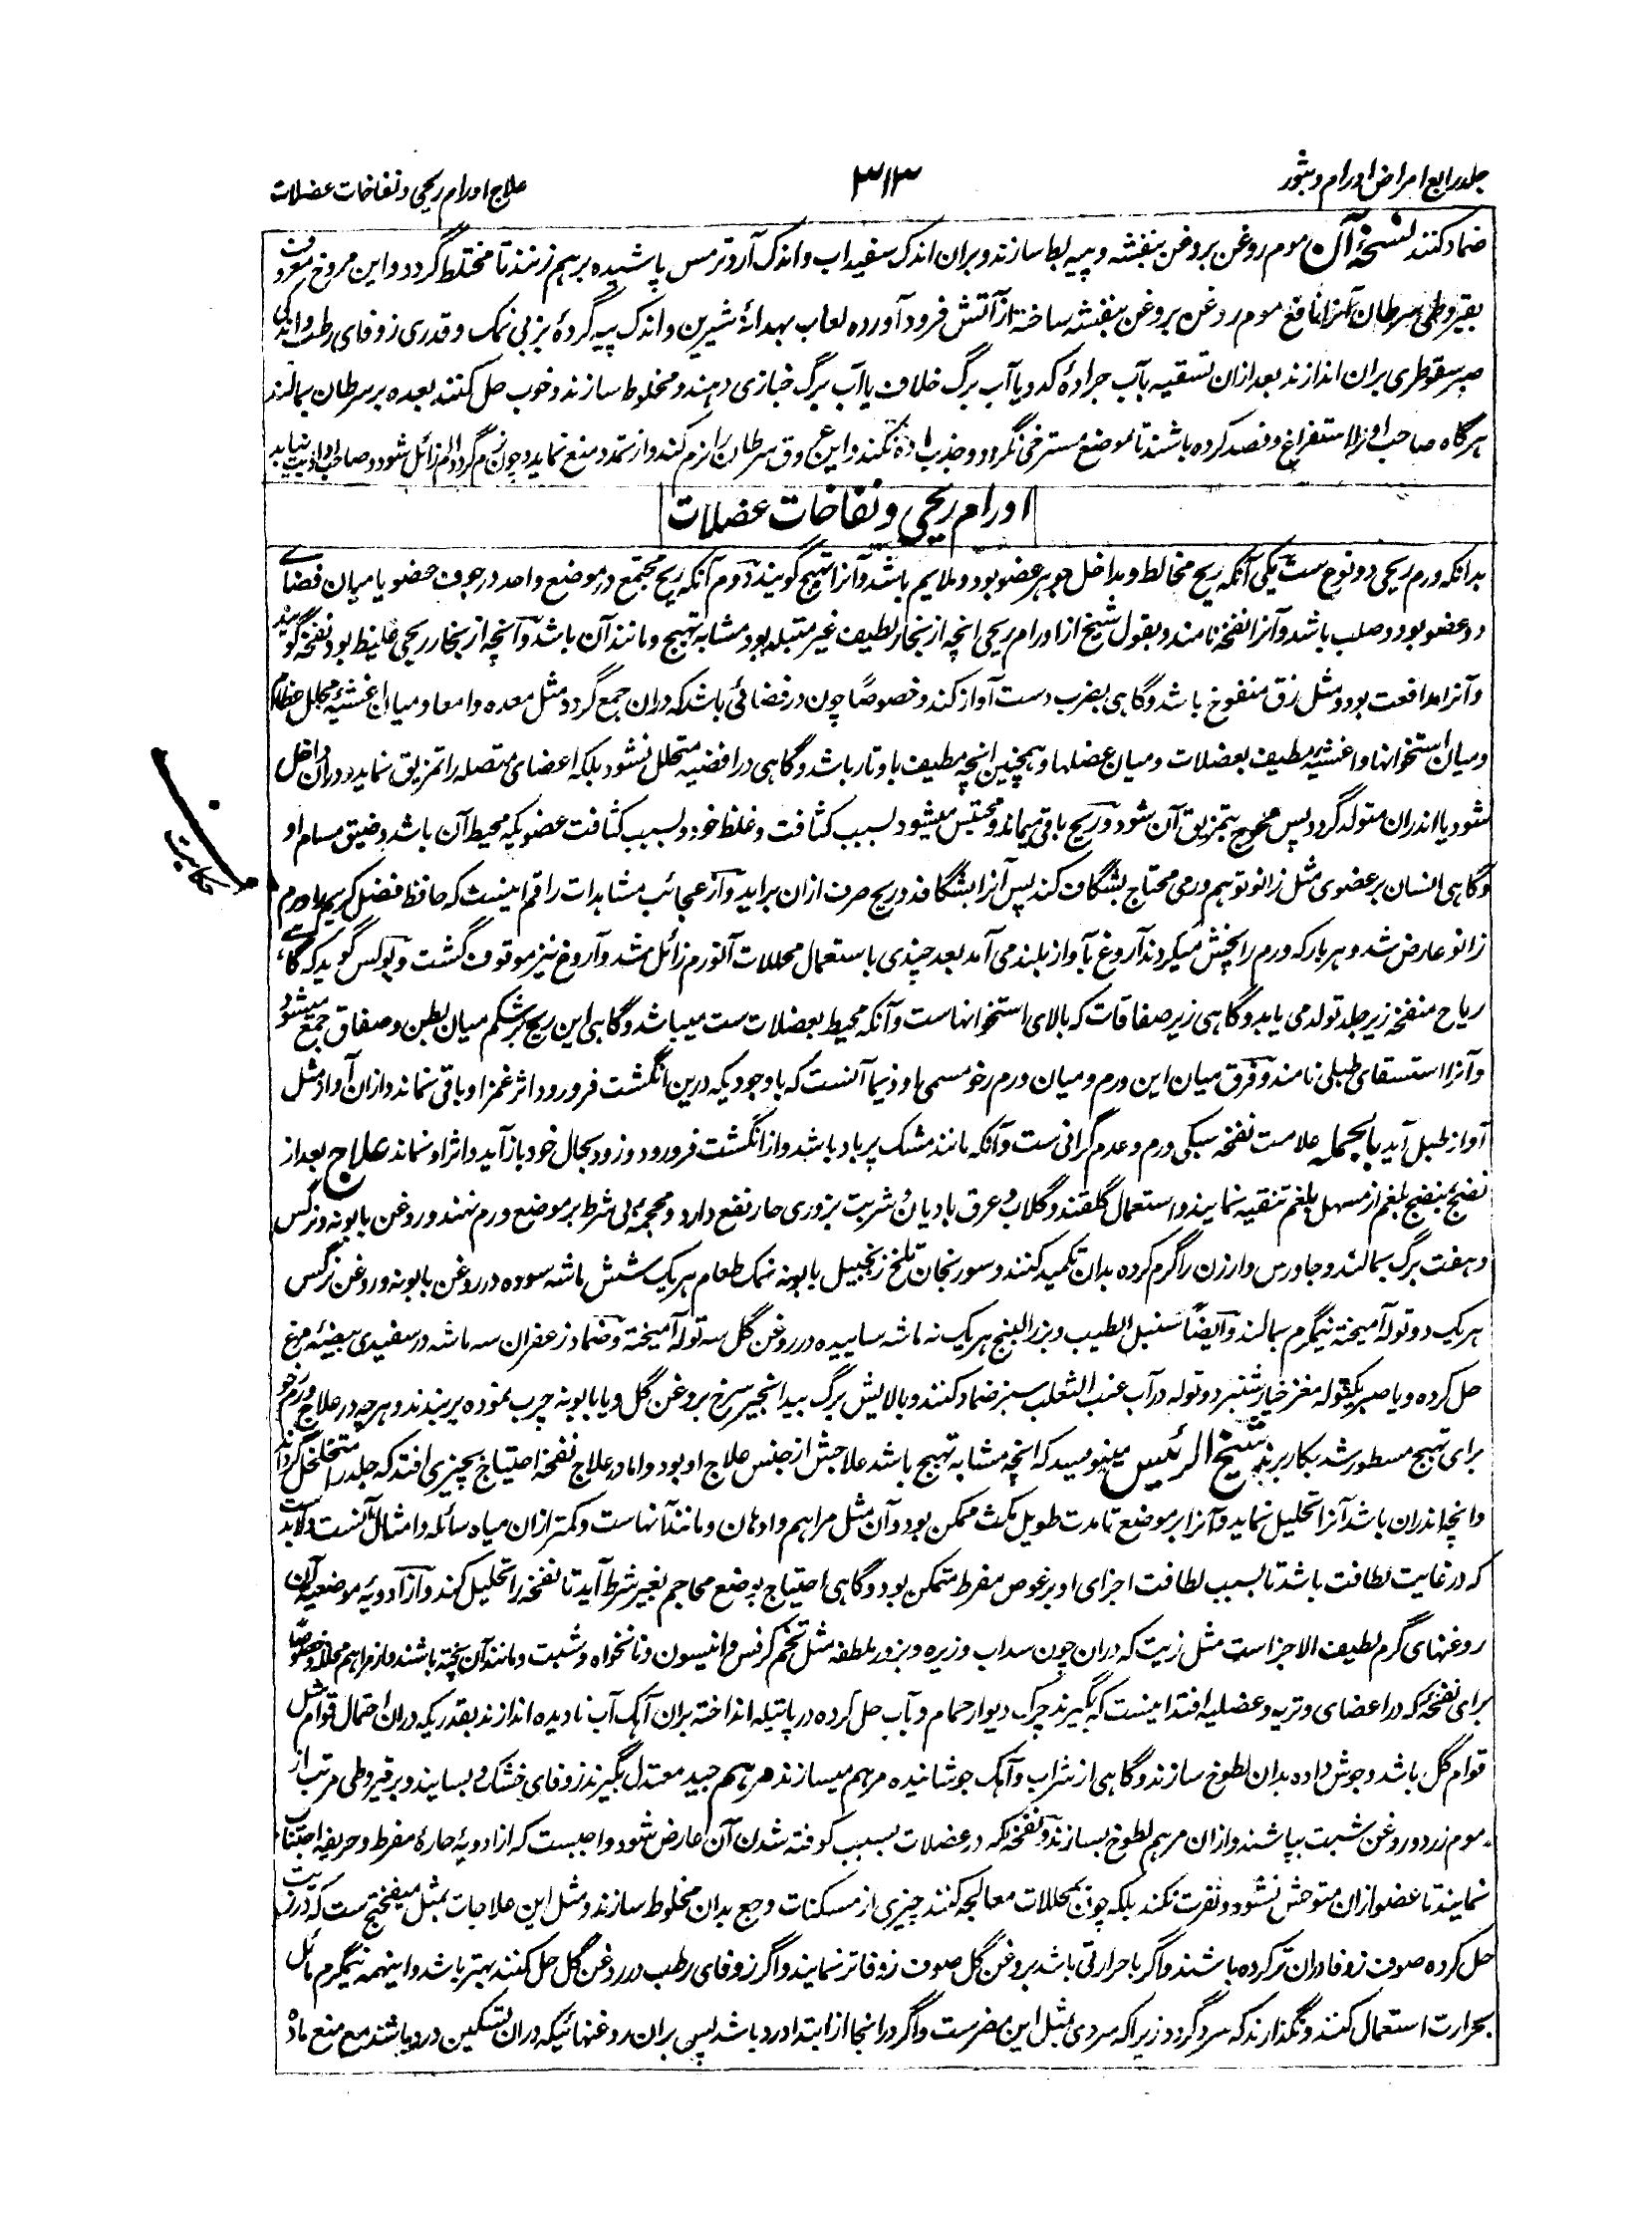 جلد رابع امراض اورام و بثور
۳۱۳
علاج اورام ریحی و نفاخات عضلات
ضماد کنند نسخهٔ آن موم روغن بروغن بنفشه و پیه بط سازند و بران اندک سفیداب و اندک آرد ترمس پاشیده برهم زنند تا مختلط گردد و این مروخ معروف
بقیروطی سرطان آنرا نافع موم روغن بروغن بنفشه ساخته از آتش فرود آورده لعاب بهدانهٔ شیرین و اندک پیه گردهٔ بز بی نمک و قدری زوفای رطب و اندکی
صبر سقوطری بران اندازند بعد ازان تسقیه بآب جرادهٔ کدو یا آب برگ خلاف یا آب برگ خبازی دهند و مخلوط سازند و خوب حل کنند بعده بر سرطان بمالند
هرگاه صاحب او را استفراغ و فصد کرده باشند تا موضع مسترخی نگردد و جذب ماده نکند و این عروق سرطان را نرم کند و از تمدد منع نماید و چون نرم گردد الم زائل شود و صاحب او اذیت نیابد
اورام ریحی و نفاخات عضلات
بدانکه ورم ریحی دو نوع ست یکی آنکه ریح مخالط و بداخل جوهر عضو بود و ملایم باشد و آنرا تهیج گویند دوم آنکه ریح مجتمع در موضع واحد در جوف عضو یا میان فضای
دو عضو بود و صلب باشد و آنرا نفخه نامند و بقول شیخ از اورام ریحی انچه از بخار لطیف غیر متبلد بود مشابه تهیج و مانند آن باشد و آنچه از بخار ریحی غلیظ بود نفخه گویند
و آنرا مدافعت بود و مثل زق منفوخ باشد و گاهی بضرب دست آواز کند و خصوصاً چون در فضائی باشد که دران جمع گردد مثل معده و امعا و میان اغشیهٔ مجلل عظام
و میان استخوانها و اغشیهٔ مطیف بعضلات و میان عضلها و همچنین انچه مطیف باوتار باشد و گاهی در افضیه متحلل نشود بلکه اعضای متصله را تمزیق نماید و دران داخل
شود یا اندران متولد گردد پس محوج بتمزیق آن شود و ریح باقی میماند و محتبس میشود بسبب کثافت و غلظ خود و بسبب کثافت عضویکه محیط آن باشد و ضیق مسام او
و گاهی انسان بر عضوی مثل زانو توهم ورمی محتاج بشگاف کند پس آنرا بشگافد و ریح صرف ازان براید و از عجائب مشاهدات راقم اینست که حافظ فضل کریم را ورم
زانو عارض شد و هر بار که ورم را بخش میکردند آروغ بآواز بلند می آمد بعد چندی باستعمال محللات آنورم زائل شد و آروغ نیز موقوف گشت و پولس گوید که گاهی
ریاح منفخه زیر جلد تولد می یابد و گاهی زیر صفاقات که بالای استخوانهاست و آنکه محیط بعضلات ست میباشد و گاهی این ریح بر شکم میان بطن و صفاق جمع میشود
و آنرا استسقای طبلی نامند و فرق میان این ورم و میان ورم رخو مسمی باوذیما آنست که باوجودیکه درین انگشت فرورود اثر غمز او باقی نماند و ازان آواز مثل
آواز طبل آید بالجمله علامت نفخه سبکی ورم و عدم گرانی ست و آنکه مانند مشک پر باد باشد و از انگشت فرورود و زود بحال خود باز آید و اثر او نماند علاج بعد از
نضج بمنضج بلغم از مسهل بلغم تنقیه نمایند و استعمال گلقند و گلاب و عرق بادیان و شربت بزوری حار نفع دارد و محجمه بی شرط بر موضع ورم نهند و روغن بابونه و نرگس
و هفت برگ بمالند و جاورس و ارزن را گرم کرده بدان تکمید کنند و سورنجان تلخ زنجبیل بابونه نمک طعام هر یک شش ماشه سوده در روغن بابونه و روغن نرگس
هر یک دو توله آمیخته نیمگرم بمالند و ایضاً سنبل الطیب و بزر البنج هر یک نه ماشه ساییده در روغن گل سه توله آمیخته و ضماد زعفران سه ماشه در سفیدی بیضهٔ مرغ
حل کرده و یا صبر یکتوله مغز خیارشنبر دو توله در آب عنب الثعلب سبز ضماد کنند و بالایش برگ بیدانجیر سرخ بروغن گل و یا بابونه چرب نموده بر بندند و هر چه در علاج ورم رخو
برای تهیج مسطور شد بکار برند شیخ الرئیس مینویسد که انچه مشابه تهیج باشد علاجش از جنس علاج او بود و اما در علاج نفخه احتیاج بچیزی افتد که جلد را متخلخل گرداند
و انچه اندران باشد آنرا تحلیل نماید و آنرا بر موضع تا مدت طویل مکث ممکن بود و آن مثل مراهم و ادهان و مانند آنهاست و کمتر ازان میاه سائله و امثال آنست و لابد ست
که در غایت لطافت باشد تا بسبب لطافت اجزای او بر غوص مفرط متمکن بود و گاهی احتیاج بوضع محاجم بغیر شرط آید تا نفخه را تحلیل کند و از ادویهٔ موضعیه آن
روغنهای گرم لطیف الاجزاست مثل زیت که دران چون سداب و زیره و بزور ملطفه مثل تخم کرفس و انیسون و نانخواه و شبت و مانند آن پخته باشند و از مراهم محلله و خصوصاً
برای نفخه که در اعضای وتریه و عضلیه افتد اینست که بگیرند چرک دیوار حمام و بآب حل کرده در پاتیله انداخته بران آهک آب نادیده اندازند بقدریکه دران احتمال قوام مثل
قوام گل باشد و جوش داده بدان لطوخ سازند و گاهی از شراب و آهک جوشانیده مرهم میسازند مرهم جید معتدل بگیرند زوفای خشک و بسایند و بر قیروطی مرتب از
موم زرد و روغن شبت بپاشند و ازان مرهم لطوخ بسازند و نفخه که در عضلات بسبب کوفته شدن آن عارض شود واجبست که از ادویهٔ حارهٔ مفرط و حریفه اجتناب
نمایند تا عضو ازان متوحش نشود و نفرت نکند بلکه چون بمحللات معالجه کنند چیزی از مسکنات وجع بدان مخلوط سازند و مثل این علاجات بمثل میفختج ست که در زیت
حل کرده صوف زوفا دران تر کرده باشند و اگر با حرارتی باشد بروغن گل صوف زوفا تر نمایند و اگر زوفای رطب در روغن گل حل کنند بهتر باشد و اینهمه نیمگرم مائل
بحرارت استعمال کنند و نگذارند که سرد گردد زیرا که سردی بمثل این مضرست و اگر در انجا از ابتدا درد باشد پس بران روغنهائیکه دران تسکین درد باشد مع منع ماده
حکایت